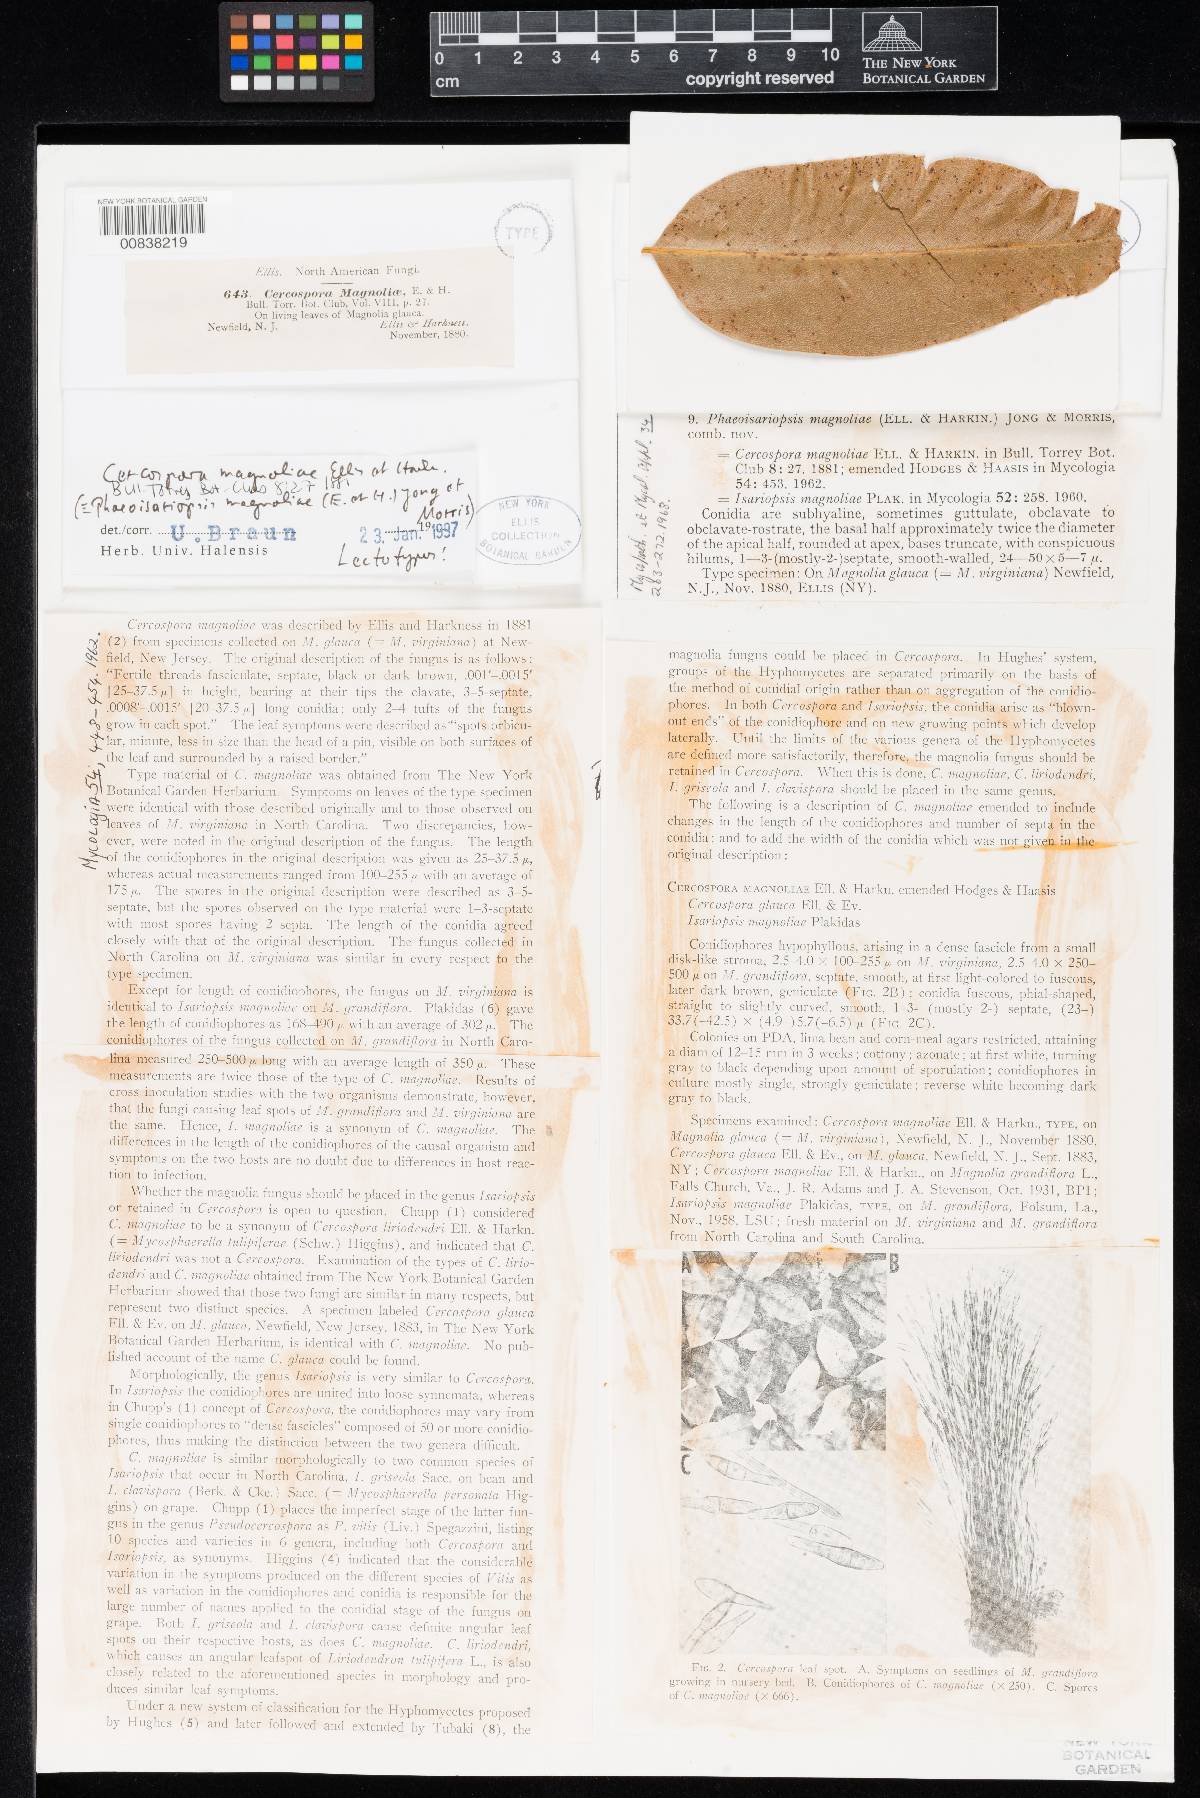 0 1 2 3 4 5 6 7 8 9 10
cm
copyright reserved
THE NEW YORK
BOTANICAL GARDEN
NEW YORK BOTANICAL GARDEN
00838219
TYPE
Ellis. North American Fungi.
643. Cercospora Magnoliæ, E. & H.
Bull. Torr. Bot. Club, Vol. VIII, p. 27.
On living leaves of Magnolia glauca.
Newfield, N. J. Ellis & Harkness.
November, 1880.
Cercospora magnoliae Ellis et Hark.
Bull. Torrey Bot. Club 8: 27 1881
(≡ Phaeoisariopsis magnoliae (E. et H.) Jong et
Morris)
det./corr. U. Braun 23. Jan. 1997
Herb. Univ. Halensis
Lectotypus!
NEW YORK
ELLIS
COLLECTION
BOTANICAL GARDEN
Mycopath. et Mycol. Appl. 34
263-272. 1968.
9. Phaeoisariopsis magnoliae (ELL. & HARKIN.) JONG & MORRIS,
comb. nov.
= Cercospora magnoliae ELL. & HARKIN. in Bull. Torrey Bot.
Club 8: 27, 1881; emended HODGES & HAASIS in Mycologia
54: 453, 1962.
= Isariopsis magnoliae PLAK. in Mycologia 52: 258. 1960.
Conidia are subhyaline, sometimes guttulate, obclavate to
obclavate-rostrate, the basal half approximately twice the diameter
of the apical half, rounded at apex, bases truncate, with conspicuous
hilums, 1—3-(mostly-2-)septate, smooth-walled, 24—50 × 5—7 μ.
Type specimen: On Magnolia glauca (= M. virginiana) Newfield,
N.J., Nov. 1880, ELLIS (NY).
Mycologia 54: 448-454. 1962.
Cercospora magnoliae was described by Ellis and Harkness in 1881
(2) from specimens collected on M. glauca (= M. virginiana) at New-
field, New Jersey. The original description of the fungus is as follows:
"Fertile threads fasciculate, septate, black or dark brown, .001'–.0015'
[25–37.5 μ] in height, bearing at their tips the clavate, 3–5-septate,
.0008'–.0015' [20–37.5 μ] long conidia; only 2–4 tufts of the fungus
grow in each spot." The leaf symptoms were described as "spots orbicu-
lar, minute, less in size than the head of a pin, visible on both surfaces of
the leaf and surrounded by a raised border."
Type material of C. magnoliae was obtained from The New York
Botanical Garden Herbarium. Symptoms on leaves of the type specimen
were identical with those described originally and to those observed on
leaves of M. virginiana in North Carolina. Two discrepancies, how-
ever, were noted in the original description of the fungus. The length
of the conidiophores in the original description was given as 25–37.5 μ,
whereas actual measurements ranged from 100–255 μ with an average of
175 μ. The spores in the original description were described as 3–5-
septate, but the spores observed on the type material were 1–3-septate
with most spores having 2 septa. The length of the conidia agreed
closely with that of the original description. The fungus collected in
North Carolina on M. virginiana was similar in every respect to the
type specimen.
Except for length of conidiophores, the fungus on M. virginiana is
identical to Isariopsis magnoliae on M. grandiflora. Plakidas (6) gave
the length of conidiophores as 168–490 μ with an average of 302 μ. The
conidiophores of the fungus collected on M. grandiflora in North Caro-
lina measured 250–500 μ long with an average length of 350 μ. These
measurements are twice those of the type of C. magnoliae. Results of
cross inoculation studies with the two organisms demonstrate, however,
that the fungi causing leaf spots of M. grandiflora and M. virginiana are
the same. Hence, I. magnoliae is a synonym of C. magnoliae. The
differences in the length of the conidiophores of the causal organism and
symptoms on the two hosts are no doubt due to differences in host reac-
tion to infection.
Whether the magnolia fungus should be placed in the genus Isariopsis
or retained in Cercospora is open to question. Chupp (1) considered
C. magnoliae to be a synonym of Cercospora liriodendri Ell. & Harkn.
(= Mycosphaerella tulipiferae (Schw.) Higgins), and indicated that C.
liriodendri was not a Cercospora. Examination of the types of C. lirio-
dendri and C. magnoliae obtained from The New York Botanical Garden
Herbarium showed that those two fungi are similar in many respects, but
represent two distinct species. A specimen labeled Cercospora glauca
Ell. & Ev. on M. glauca, Newfield, New Jersey, 1883, in The New York
Botanical Garden Herbarium, is identical with C. magnoliae. No pub-
lished account of the name C. glauca could be found.
Morphologically, the genus Isariopsis is very similar to Cercospora.
In Isariopsis the conidiophores are united into loose synnemata, whereas
in Chupp's (1) concept of Cercospora, the conidiophores may vary from
single conidiophores to "dense fascicles" composed of 50 or more conidio-
phores, thus making the distinction between the two genera difficult.
C. magnoliae is similar morphologically to two common species of
Isariopsis that occur in North Carolina, I. griseola Sacc. on bean and
I. clavispora (Berk. & Cke.) Sacc. (= Mycosphaerella personata Hig-
gins) on grape. Chupp (1) places the imperfect stage of the latter fun-
gus in the genus Pseudocercospora as P. vitis (Liv.) Spegazzini, listing
10 species and varieties in 6 genera, including both Cercospora and
Isariopsis, as synonyms. Higgins (4) indicated that the considerable
variation in the symptoms produced on the different species of Vitis as
well as variation in the conidiophores and conidia is responsible for the
large number of names applied to the conidial stage of the fungus on
grape. Both I. griseola and I. clavispora cause definite angular leaf
spots on their respective hosts, as does C. magnoliae. C. liriodendri,
which causes an angular leafspot of Liriodendron tulipifera L., is also
closely related to the aforementioned species in morphology and pro-
duces similar leaf symptoms.
Under a new system of classification for the Hyphomycetes proposed
by Hughes (5) and later followed and extended by Tubaki (8), the
magnolia fungus could be placed in Cercospora. In Hughes' system,
groups of the Hyphomycetes are separated primarily on the basis of
the method of conidial origin rather than on aggregation of the conidio-
phores. In both Cercospora and Isariopsis, the conidia arise as "blown-
out ends" of the conidiophore and on new growing points which develop
laterally. Until the limits of the various genera of the Hyphomycetes
are defined more satisfactorily, therefore, the magnolia fungus should be
retained in Cercospora. When this is done, C. magnoliae, C. liriodendri,
I. griseola and I. clavispora should be placed in the same genus.
The following is a description of C. magnoliae emended to include
changes in the length of the conidiophores and number of septa in the
conidia; and to add the width of the conidia which was not given in the
original description:
CERCOSPORA MAGNOLIAE Ell. & Harkn. emended Hodges & Haasis
Cercospora glauca Ell. & Ev.
Isariopsis magnoliae Plakidas
Conidiophores hypophyllous, arising in a dense fascicle from a small
disk-like stroma, 2.5–4.0 × 100–255 μ on M. virginiana, 2.5–4.0 × 250–
500 μ on M. grandiflora, septate, smooth, at first light-colored to fuscous,
later dark brown, geniculate (FIG. 2B); conidia fuscous, phial-shaped,
straight to slightly curved, smooth, 1–3- (mostly 2-) septate, (23–)
33.7(–42.5) × (4.9–)5.7(–6.5) μ (FIG. 2C).
Colonies on PDA, lima bean and corn-meal agars restricted, attaining
a diam of 12–15 mm in 3 weeks; cottony; azonate; at first white, turning
gray to black depending upon amount of sporulation; conidiophores in
culture mostly single, strongly geniculate; reverse white becoming dark
gray to black.
Specimens examined: Cercospora magnoliae Ell. & Harkn., TYPE, on
Magnolia glauca (= M. virginiana), Newfield, N. J., November 1880,
Cercospora glauca Ell. & Ev., on M. glauca, Newfield, N. J., Sept. 1883,
NY; Cercospora magnoliae Ell. & Harkn., on Magnolia grandiflora L.,
Falls Church, Va., J. R. Adams and J. A. Stevenson, Oct. 1931, BPI;
Isariopsis magnoliae Plakidas, TYPE, on M. grandiflora, Folsum, La.,
Nov., 1958, LSU; fresh material on M. virginiana and M. grandiflora
from North Carolina and South Carolina.
A
B
C
FIG. 2. Cercospora leaf spot. A. Symptoms on seedlings of M. grandiflora
growing in nursery bed. B. Conidiophores of C. magnoliae (× 250). C. Spores
of C. magnoliae (× 666).
NEW YORK
BOTANICAL
GARDEN